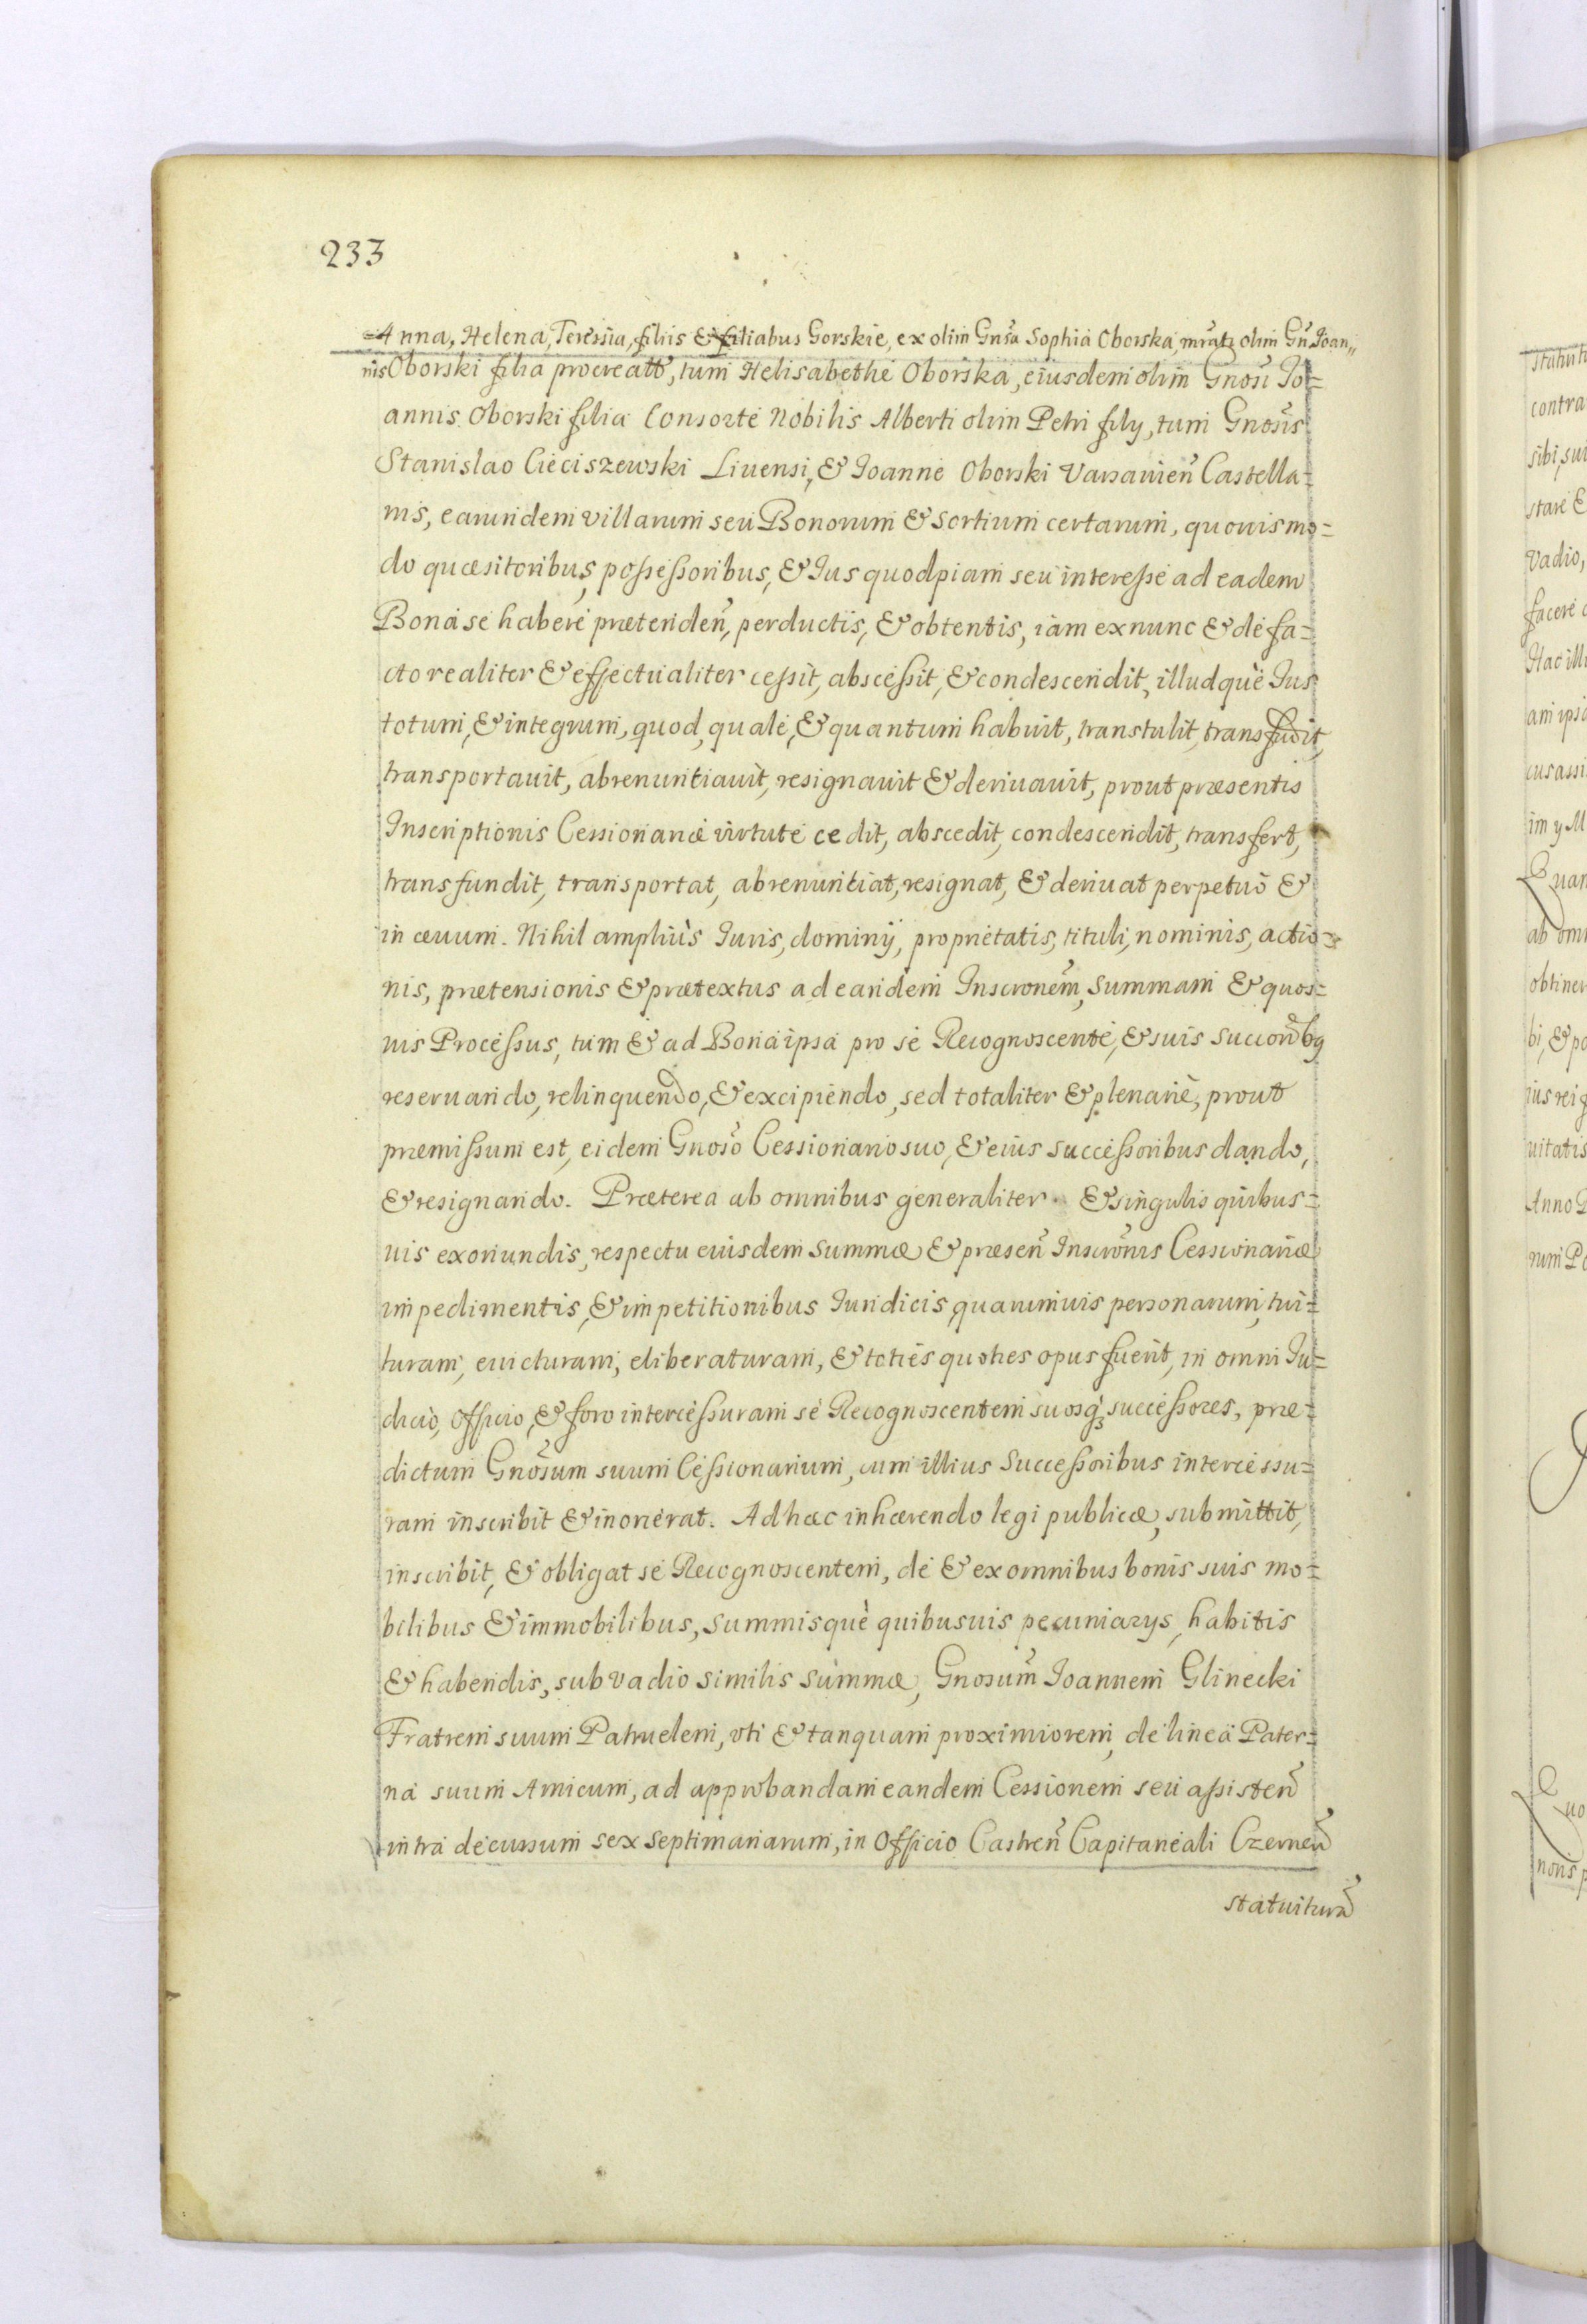 233
Anna, Helena, Teressia, filiis & filiabus Gorskie, ex olim Gnsa Sophia Oborska, mratz olim Gn Ioan„
nis Oborski filia procreatt, tum Helisabethe Oborska, eiusdem olim Gnosi Jo=
annis Oborski filia Consorte Nobilis Alberti olim Petri fily, tum Gnosis
Stanislao Cieciszewski Liuensi, & Ioanne Oborski Varsauien Castella=
nis, earundem villarum seu Bonorum & sortium certarum, quouis mo=
do quæsitoribus, possessoribus, & Ius quodpiam seu interesse ad eadem
Bona se habere prætenden, perductis, & obtentis, iam ex nunc & de fa=
cto realiter & effectualiter cessit, abscessit, & condescendit, illudque Ius
totum, & integrum, quod, quale, & quantum habuit, transtulit, transfudit,
transportauit, abrenuntiauit, resignauit & deriuauit, prout præsentis
Inscriptionis Cessionariæ virtute cedit, abscedit, condescendit, transfert,
transfundit, transportat, abrenuntiat, resignat, & deriuat perpetuo &
in æuum. Nihil amplius Iuris, dominÿ, proprietatis, tituli, nominis, actio=
nis, prætensionis & prætextus ad eandem Inscronem, summam & quos=
uis Processus, tum & ad Bona ipsa pro se Recognoscente, & suis succonbg
reseruando, relinquendo, & excipiendo, sed totaliter & plenarie, prout
premissum est, eidem Gnoso Cessionario suo, & eius successoribus dando,
& resignando. Præterea ab omnibus generaliter & singulis quibus=
uis exoriundis, respectu eiusdem summæ & præsen Inscronis Cessionariæ
impedimentis, & impetitionibus Iuridicis quarumuis personarum, tui=
turam, euicturam, eliberaturam, & toties quoties opus fuerit, in omni Iu=
dicio, Officio, & foro intercessuram se Recognoscentem suosq3 successores, præ=
dictum Gnosum suum Cessionarium, cum illius Successoribus intercessu=
ram inscribit & inonerat. Ad hæc inhærendo legi publicæ, submittit,
inscribit, & obligat se Recognoscentem, de & ex omnibus bonis suis mo=
bilibus & immobilibus, summisque quibusuis pecuniarys, habitis
& habendis, sub vadio similis summæ, Gnosum Joannem Glinecki
Fratrem suum Patruelem, vti & tanquam proximiorem, de linea Pater=
na suum Amicum, ad approbandam eandem Cessionem seu assisten
intra decursum sex septimanarum, in Officio Castren Capitaneali Czernen
statuitura